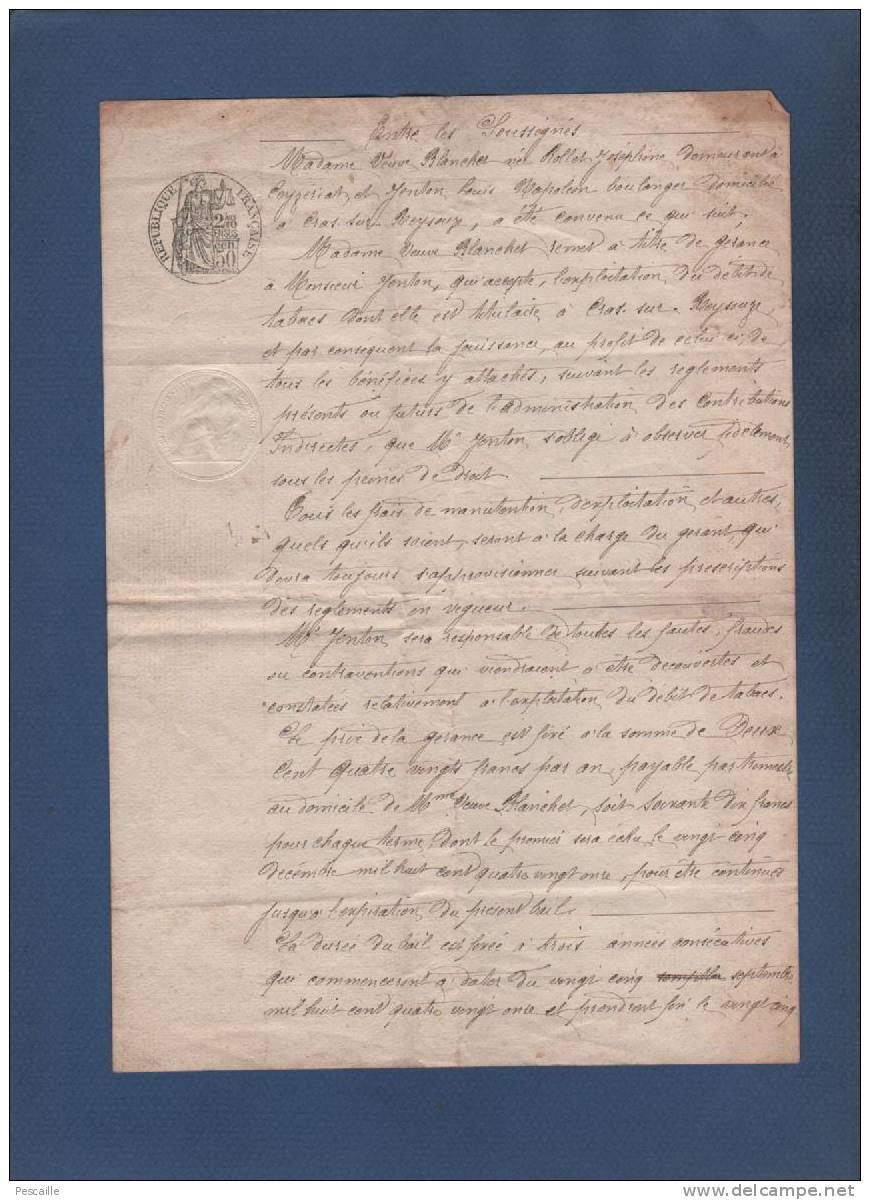 Entre les Soussignés
Madame Veuve Blanchet née Rollet Joséphine demeurant à
Ceyzeriat, et Jonton Louis Napoléon boulanger domicilié
à Cras-sur-Reysouze, a été convenu ce qui suit.
Madame Veuve Blanchet remet à titre de gérance
à Monsieur Jonton, qui accepte, l'exploitation du débit de
tabacs dont elle est titulaire à Cras-sur-Reysouze,
et par consequent la jouissance, au profit de celui ci, de
tous les bénéfices y attachés, suivant les reglements
présents ou futurs de l'administration des Contributions
Indirectes, que Mr Jonton s'oblige à observer fidèlement,
sous les peines de droit.
Tous les frais de manutention, d'exploitation et autres,
quels qu'ils soient, seront à la charge du gérant, qui
devra toujours s'approvisionner suivant les prescriptions
des reglements en vigueur.
Mr Jonton sera responsable de toutes les fautes, fraudes
ou contraventions qui viendraient à être decouvertes et
constatées relativement à l'exploitation du débit de tabacs.
Le prix de la gérance est fixé à la somme de Deux
Cent quatre vingts francs par an, payable par trimestre
au domicile de Mme Veuve Blanchet, soit soixante dix francs
pour chaque terme dont le premier sera échu le vingt cinq
decémbre mil huit cent quatre vingt onze, pour être continués
jusqu'à l'expiration du présent bail.
La durée du bail est fixée à trois années consécutives
qui commenceront à dater du vingt cinq septembre
mil huit cent quatre vingt onze et prendront fin le vingt cinq
RÉPUBLIQUE FRANÇAISE
2/10
EN SUS
50
CEN
Pescaille
delcampe.net